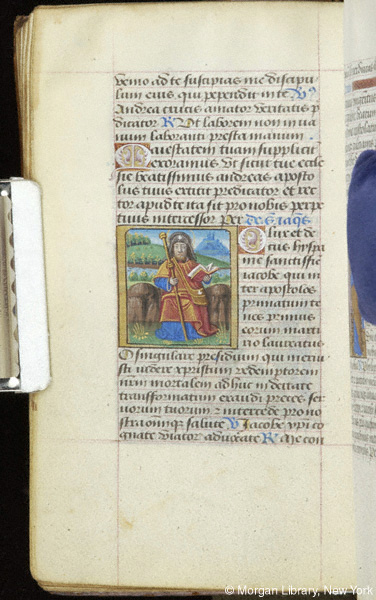 venio ad te suscipias me discipu
lum eius, qui pependit in te V
Andrea crucis amator veritatis p
dicator R Ut laborem non in va
nium laboranti presta manum
Maiestatem tuam supplicit
exoramus Ut sicut tue eccle
sie beatissimus andreas aposto
lus tuus extitit predicator et rec
tor apud te ita sit pro nobis perpe
tuus intercessor per De s. iaqs
O lux et de
cus hyspa
nie sanctissie
iacobe qui in
ter apostolos
primatum te
nes primus
eorum marti
rio laureatus
O singulare presidium qui meruisti videre xpristum redemptorem
mortalem adhuc in deitate
transformatum exaudi preces ser
vorum tuorum z intercede pro no
stra omniumq salute V Iacobe xpi co
gnate viator advocate R Me con
© Morgan Library, New York